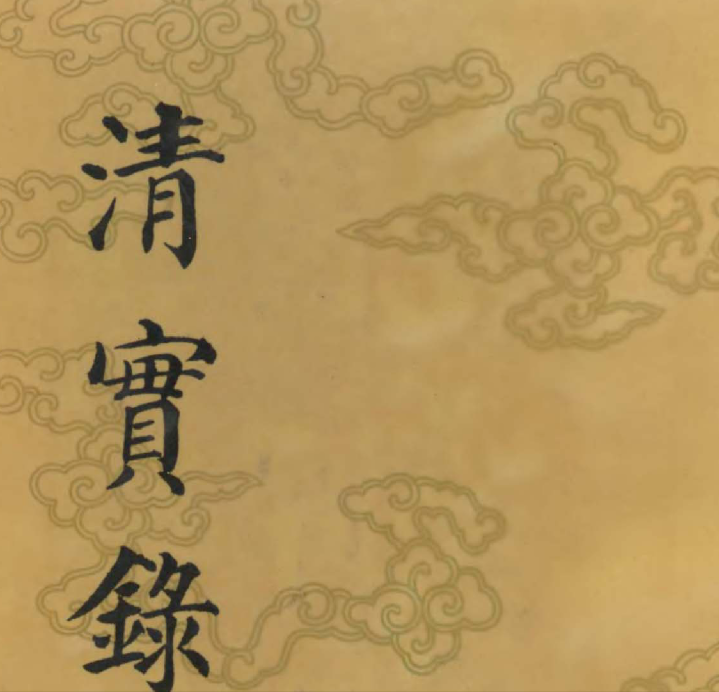 清實錄